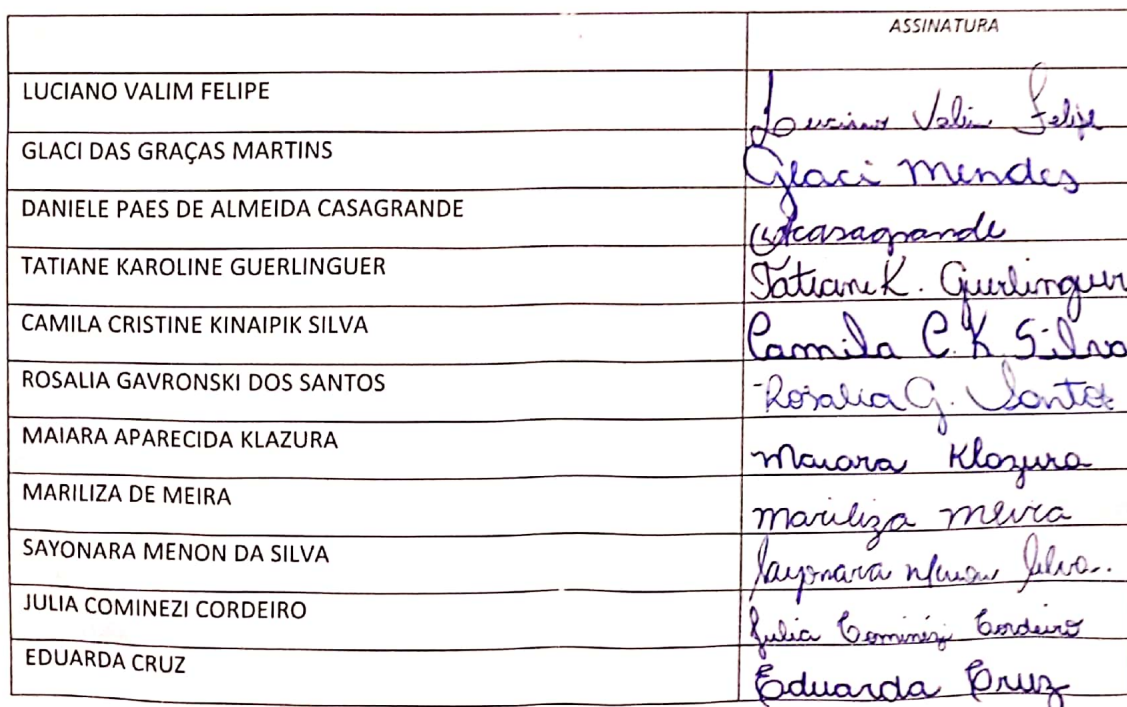 ASSINATURA
LUCIANO VALIM FELIPE Luciano Valim Felipe
GLACI DAS GRAÇAS MARTINS Glaci Mendes
DANIELE PAES DE ALMEIDA CASAGRANDE
TATIANE KAROLINE GUERLINGUER Tatiane K. Guerlinguer
CAMILA CRISTINE KINAIPIK SILVA Camila C. K Silva
ROSALIA GAVRONSKI DOS SANTOS Rosalia G. Santos
MAIARA APARECIDA KLAZURA Maiara Klazura
MARILIZA DE MEIRA mariliza meira
SAYONARA MENON DA SILVA Sayonara Menon Silva.
JULIA COMINEZI CORDEIRO Julia Cominezi Cordeiro
EDUARDA CRUZ Eduarda Cruz